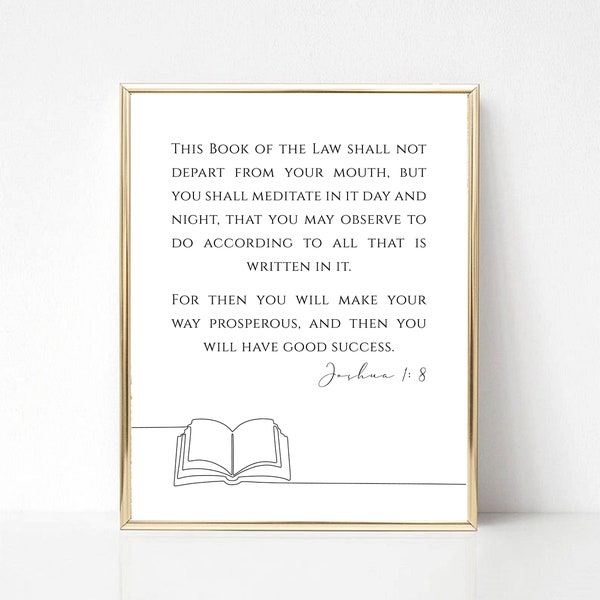 This Book of the Law shall not
depart from your mouth, but
you shall meditate in it day and
night, that you may observe to
do according to all that is
written in it.
For then you will make your
way prosperous, and then you
will have good success.
Joshua 1: 8